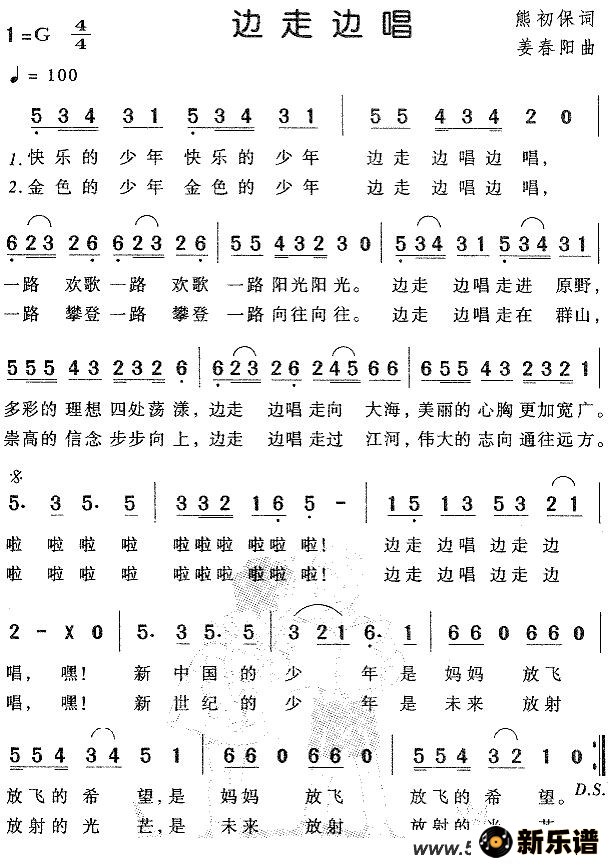 边走边唱
熊初保词
1=G 4/4
姜春阳曲
♩= 100
5 3 4 3 1 5 3 4 3 1 | 5 5 4 3 4 2 0 |
1.快乐的 少年 快乐的 少年 边走 边唱边 唱,
2.金色的 少年 金色的 少年 边走 边唱边 唱,
6 2 3 2 6 6 2 3 2 6 | 5 5 4 3 2 3 0 | 5 3 4 3 1 5 3 4 3 1 |
一路 欢歌 一路 欢歌 一路 阳光阳光。 边走 边唱走进 原野,
一路 攀登 一路 攀登 一路 向往向往。 边走 边唱走在 群山,
5 5 5 4 3 2 3 2 6 | 6 2 3 2 6 2 4 5 6 6 | 6 5 5 4 3 2 3 2 1 |
多彩的 理想 四处荡漾, 边走 边唱 走向 大海, 美丽的 心胸 更加宽广。
崇高的 信念 步步向上, 边走 边唱 走过 江河, 伟大的 志向 通往远方。
5· 3 5· 5 | 3 3 2 1 6 5 - | 1 5 1 3 5 3 2 1 |
啦 啦 啦 啦 啦啦啦 啦啦 啦! 边走 边唱 边走 边
啦 啦 啦 啦 啦啦啦 啦啦 啦! 边走 边唱 边走 边
2 - X 0 | 5· 3 5· 5 | 3 3 2 1 6· 1 | 6 6 0 6 6 0 |
唱, 嘿! 新 中 国 的 少 年 是 妈妈 放飞
唱, 嘿! 新 世 纪 的 少 年 是 未来 放射
5 5 4 3 4 5 1 | 6 6 0 6 6 0 | 5 5 4 3 2 1 0 :
放飞的 希 望,是 妈妈 放飞 放飞的 希 望。
D.S.
放射的 光 芒,是 未来 放射 放射的 光 芒
www.5
新乐谱